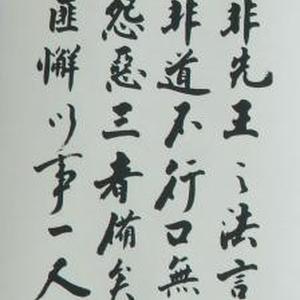 非先王之法言
非道不行口無
怨惡三者備矣
匪懈以事一人